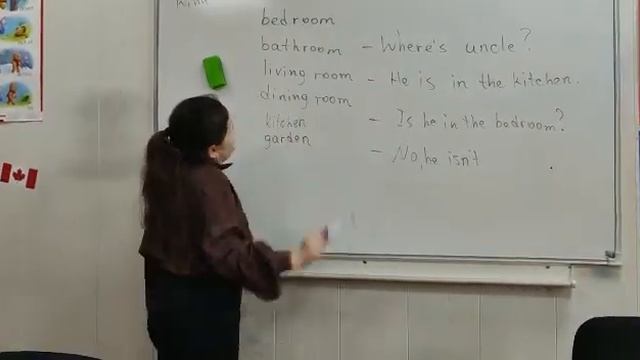 bedroom
bathroom - Where's uncle?
living room - He is in the kitchen.
dining room
kitchen - Is he in the bedroom?
garden
- No, he isn't